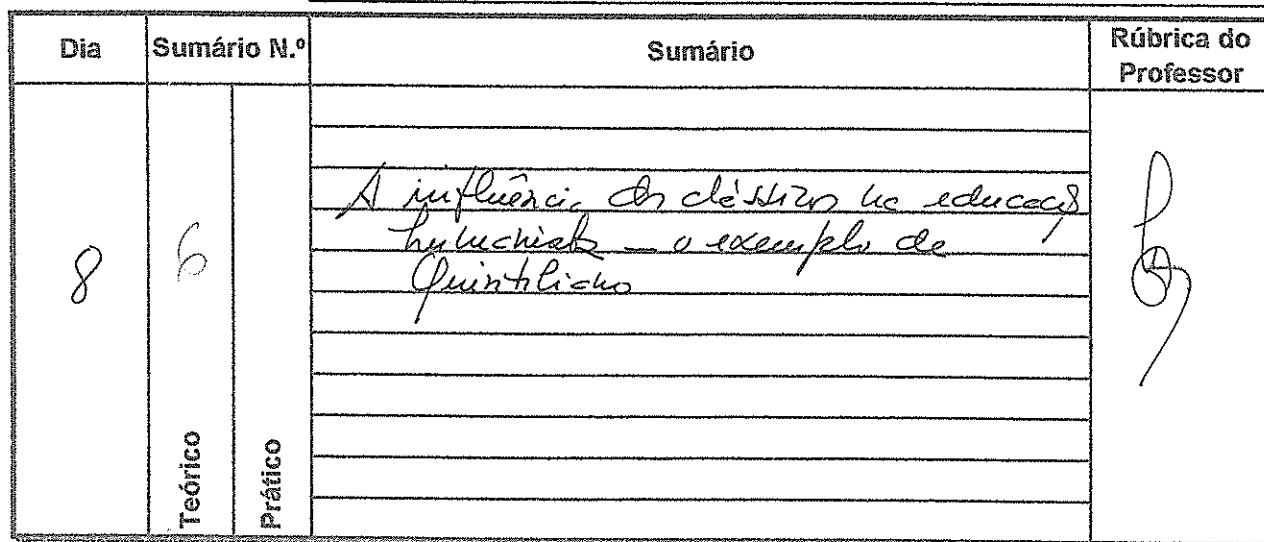 Dia
Sumário N.º
Sumário
Rúbrica do
Professor
8
6
A influência dos clássicos na educação
humanista – o exemplo de
Quintiliano
Teórico
Prático